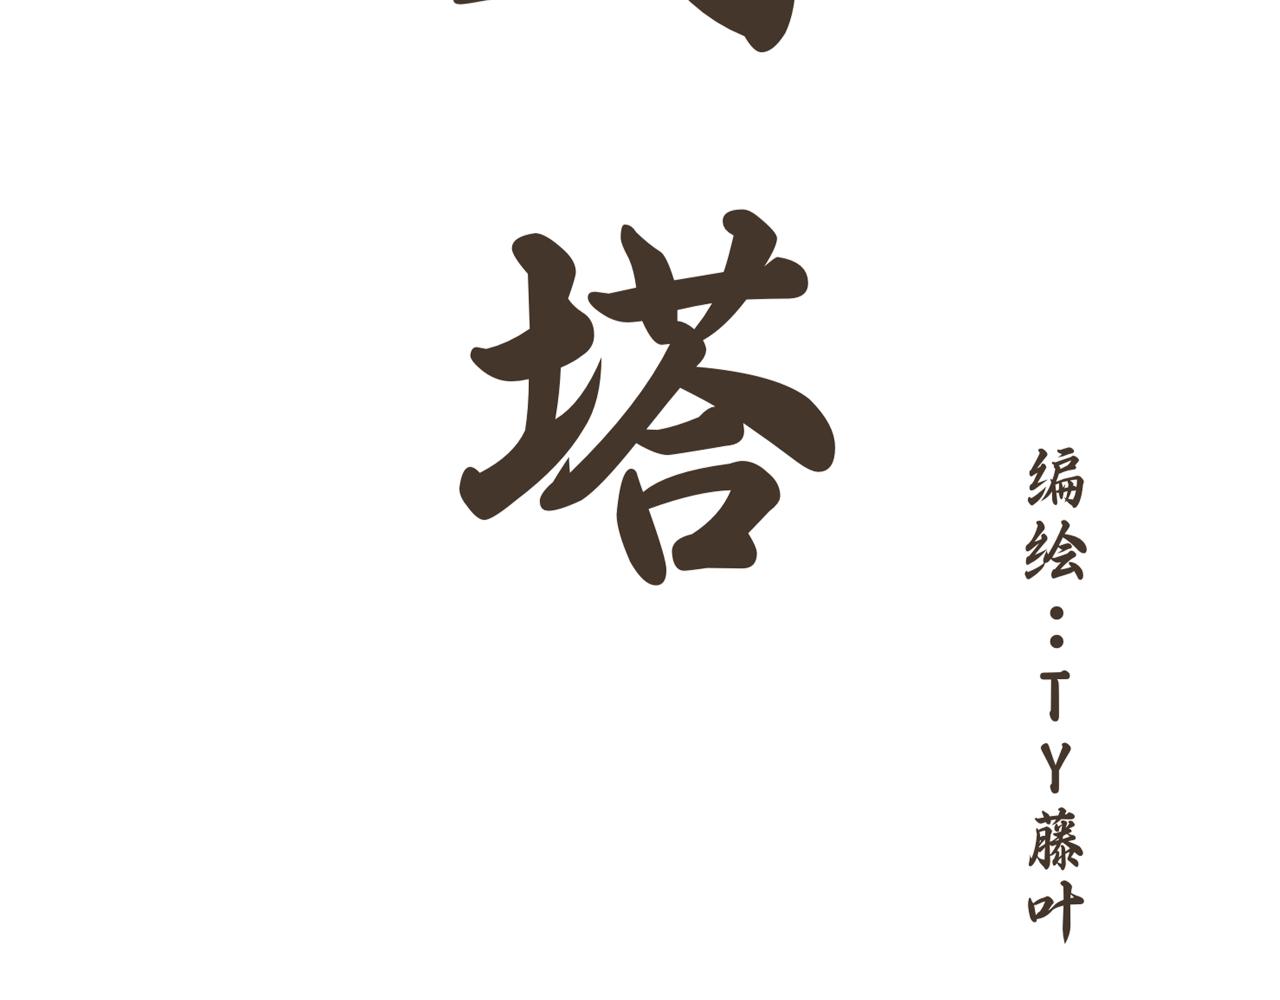 塔
编绘：TY藤叶